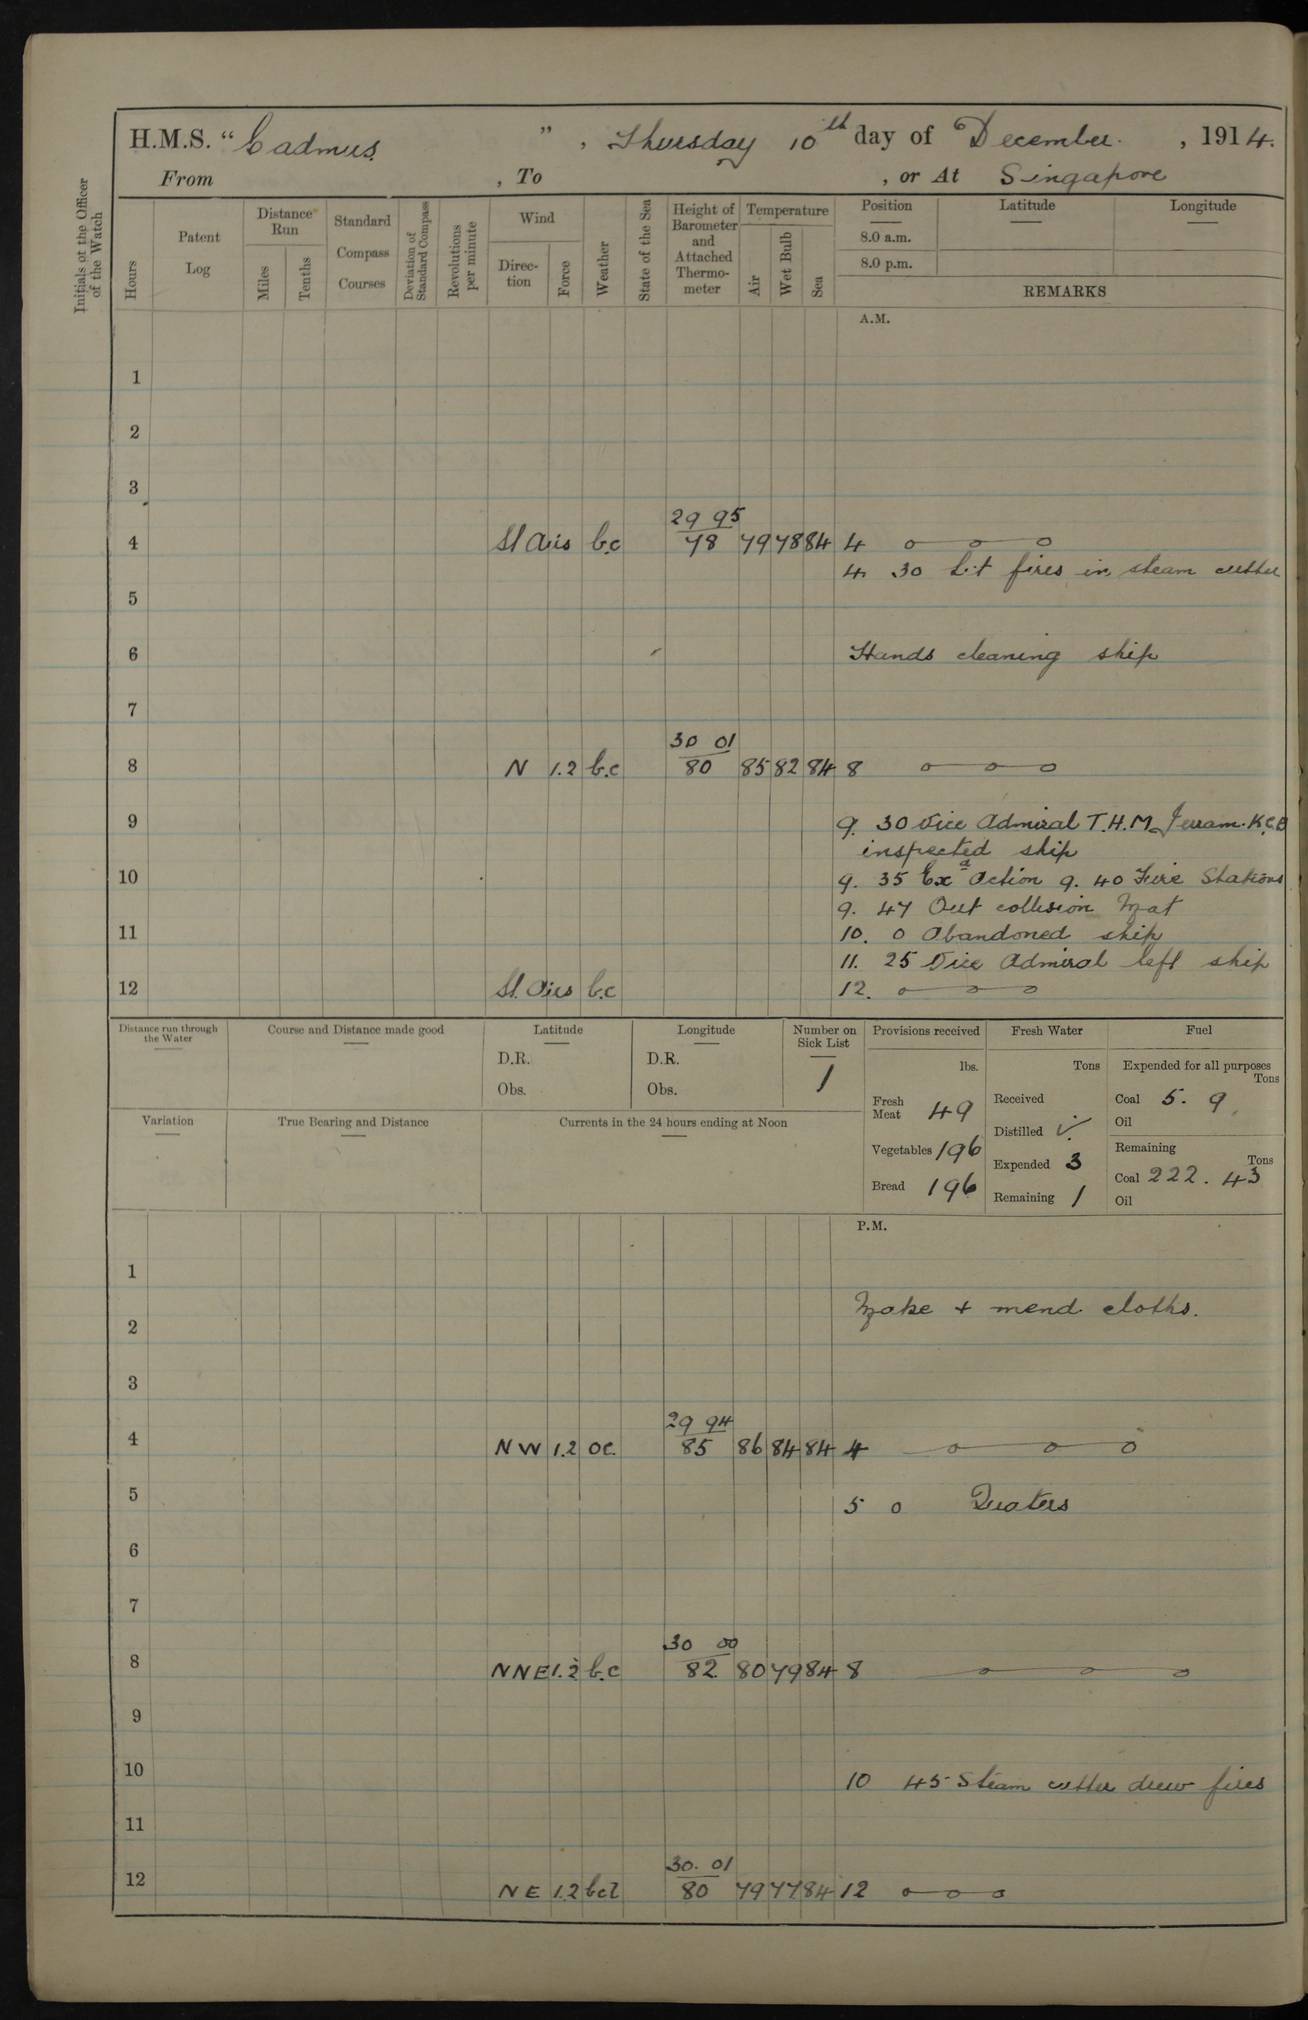 H.M.S. "Cadmus", Thursday 10th day of December, 1914.
From , To , or At Singapore
Initials of the Officer of the Watch
Hours
Patent Log
Distance Run
Miles
Tenths
Standard Compass Courses
Deviation of Standard Compass
Revolutions per minute
Wind
Direction
Force
Weather
State of the Sea
Height of Barometer and Attached Thermometer
Temperature
Air
Wet Bulb
Sea
Position Latitude Longitude
8.0 a.m.
8.0 p.m.
REMARKS
A.M.
1
2
3
29 95
4 Lt Airs b.c 78 79 78 84 4 o o o
4. 30 Lit fires in steam cutter
5
6 Hands cleaning ship
7
30 01
8 N 1.2 b.c 80 85 82 84 8 o o o
9 9. 30 Vice Admiral T.H.M. Jerram. K.C.B
inspected ship
10 9. 35 Exd Action 9. 40 Fire Stations
9. 47 Out collision Mat
11 10. 0 Abandoned ship
11. 25 Vice Admiral left ship
12 Lt. Airs b.c 12. o o o
Distance run through the Water
Course and Distance made good
Latitude
D.R.
Obs.
Longitude
D.R.
Obs.
Number on Sick List
1
Provisions received
lbs.
Fresh Meat 49
Vegetables 196
Bread 196
Fresh Water
Tons
Received
Distilled ✓
Expended 3
Remaining 1
Fuel
Expended for all purposes
Tons
Coal 5. 9
Oil
Remaining
Tons
Coal 222. 43
Oil
Variation
True Bearing and Distance
Currents in the 24 hours ending at Noon
P.M.
1
Make + mend cloths.
2
3
29 94
4 NW 1.2 oc. 85 86 84 84 4 o o o
5 5 0 Quaters
6
7
30 00
8 NNE 1.2 b.c 82 80 79 84 8 o o o
9
10 10 45 Steam cutter drew fires
11
30. 01
12 NE 1.2 bcl 80 79 77 84 12 o o o